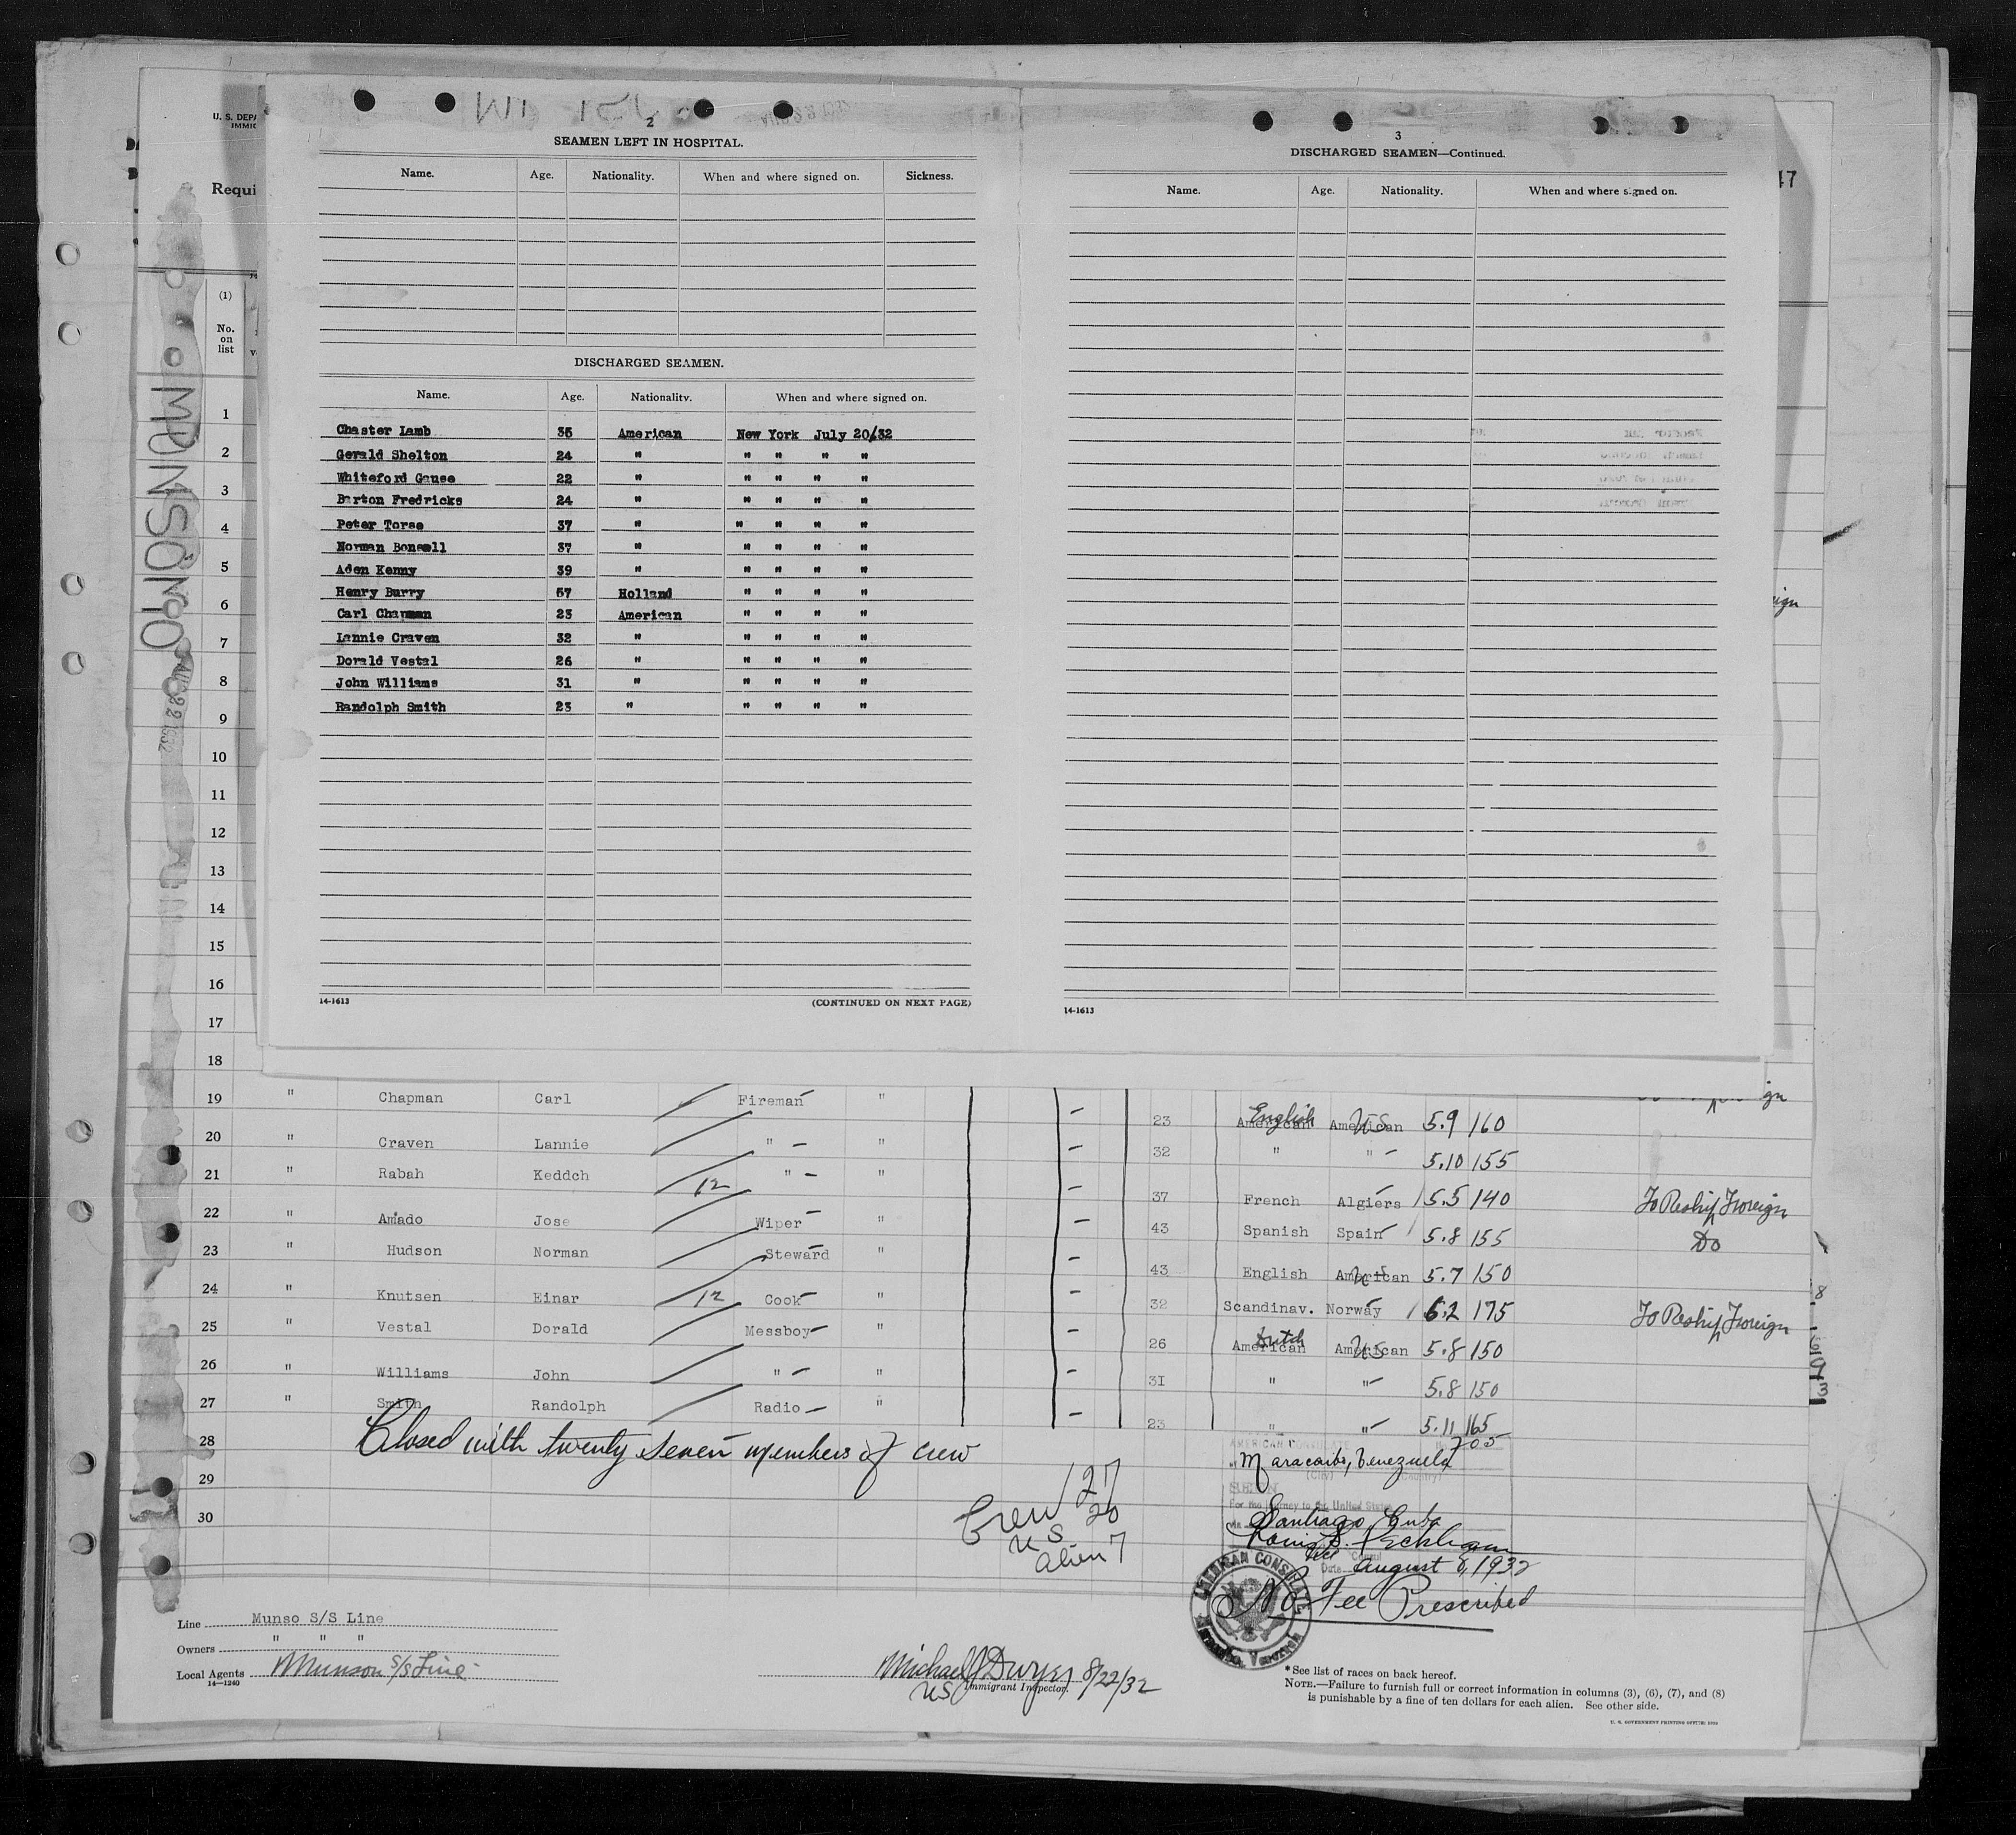 U. S. DEPA
IMMIC
Requi
(1)
No.
on
list
MUNSOMO
AUG 22 1932
2
SEAMEN LEFT IN HOSPITAL.
Name. Age. Nationality. When and where signed on. Sickness.
DISCHARGED SEAMEN.
Name. Age. Nationality. When and where signed on.
Chaster Lamb 35 American New York July 20/32
Gerald Shelton 24 " " " " "
Whiteford Gause 22 " " " " "
Barton Fredricks 24 " " " " "
Peter Torse 37 " " " " "
Norman Bonsell 37 " " " " "
Aden Kenny 39 " " " " "
Henry Burry 57 Holland " " " "
Carl Chapman 23 American " " " "
Lannie Craven 32 " " " " "
Dorald Vestal 26 " " " " "
John Williams 31 " " " " "
Randolph Smith 23 " " " " "
14-1613 (CONTINUED ON NEXT PAGE)
3
DISCHARGED SEAMEN—Continued.
Name. Age. Nationality. When and where signed on.
14-1613
47
1
2
3
4
5
6
7
8
9
10
11
12
13
14
15
16
17
18
19 " Chapman Carl Fireman " – 23 American English American US 5.9 160
20 " Craven Lannie " – " – 32 " " – 5.10 155
21 " Rabah Keddch 12 " – " – 37 French Algiers 5.5 140 To Reship Foreign
22 " Amado Jose Wiper " – 43 Spanish Spain 5.8 155 Do
23 " Hudson Norman Steward " – 43 English American US 5.7 150
24 " Knutsen Einar 12 Cook " – 32 Scandinav. Norway 6.2 175 To Reship Foreign
25 " Vestal Dorald Messboy " – 26 American Dutch American US 5.8 150
26 " Williams John " – " – 31 " " – 5.8 150
27 " Smith Randolph Radio – " – 23 " " – 5.11 165
28 Closed with twenty seven members of crew
29
30
Crew 27
US 20
alien 7
AMERICAN CONSULATE
Maracaibo, Venezuela
(City) (Country)
SEEN
For the journey to the United States
Via Santiago, Cuba
Vice Consul
Date August 8, 1932
No Fee Prescribed
AMERICAN CONSULATE
Maracaibo, Venezuela
Line Munso S/S Line
Owners " " "
Local Agents Munson S/S Line
14—1240
Michael J Dwyer 8/22/32
US Immigrant Inspector.
* See list of races on back hereof.
NOTE.—Failure to furnish full or correct information in columns (3), (6), (7), and (8)
is punishable by a fine of ten dollars for each alien. See other side.
U. S. GOVERNMENT PRINTING OFFICE